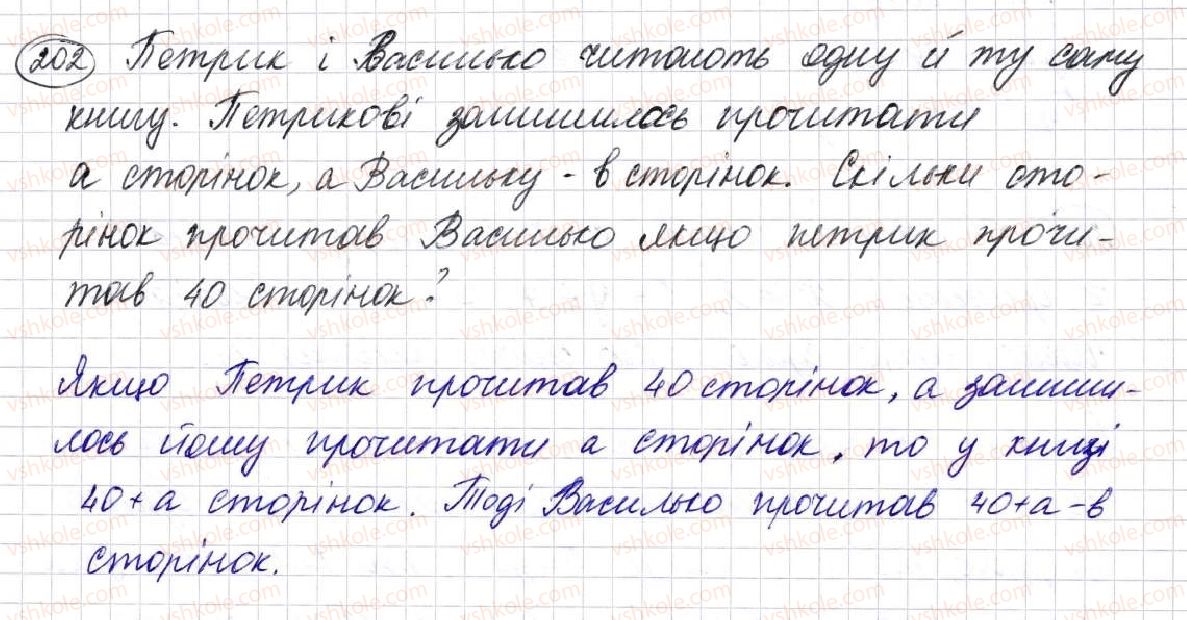 202 Петрик і Василько читають одну й ту саму
книгу. Петрикові залишилось прочитати
а сторінок, а Васильку - в сторінок. Скільки сто-
рінок прочитав Василько якщо петрик прочи-
тав 40 сторінок?
Якщо Петрик прочитав 40 сторінок, а залиши-
лось йому прочитати а сторінок, то у книзі
40+а сторінок. Тоді Василько прочитав 40+а-в
сторінок.